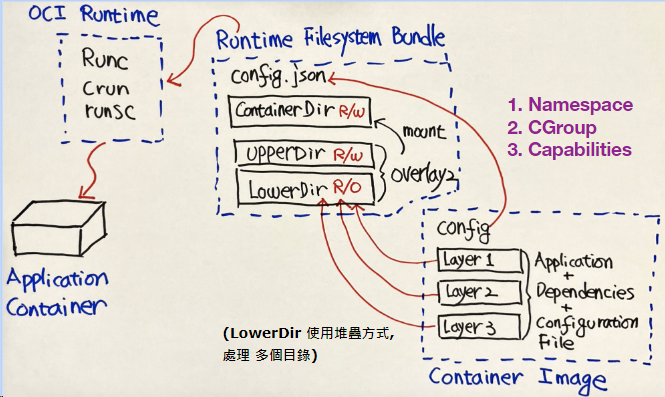 OCI Runtime
Runc
Crun
runSC
Application
Container
Runtime Filesystem Bundle
config.json
ContainerDir R/W
mount
UpperDir R/W
LowerDir R/O
overlay2
1. Namespace
2. CGroup
3. Capabilities
config
Layer 1
Layer 2
Layer 3
Application
+
Dependencies
+
Configuration
File
Container Image
(LowerDir 使用堆疊方式,
處理 多個目錄)